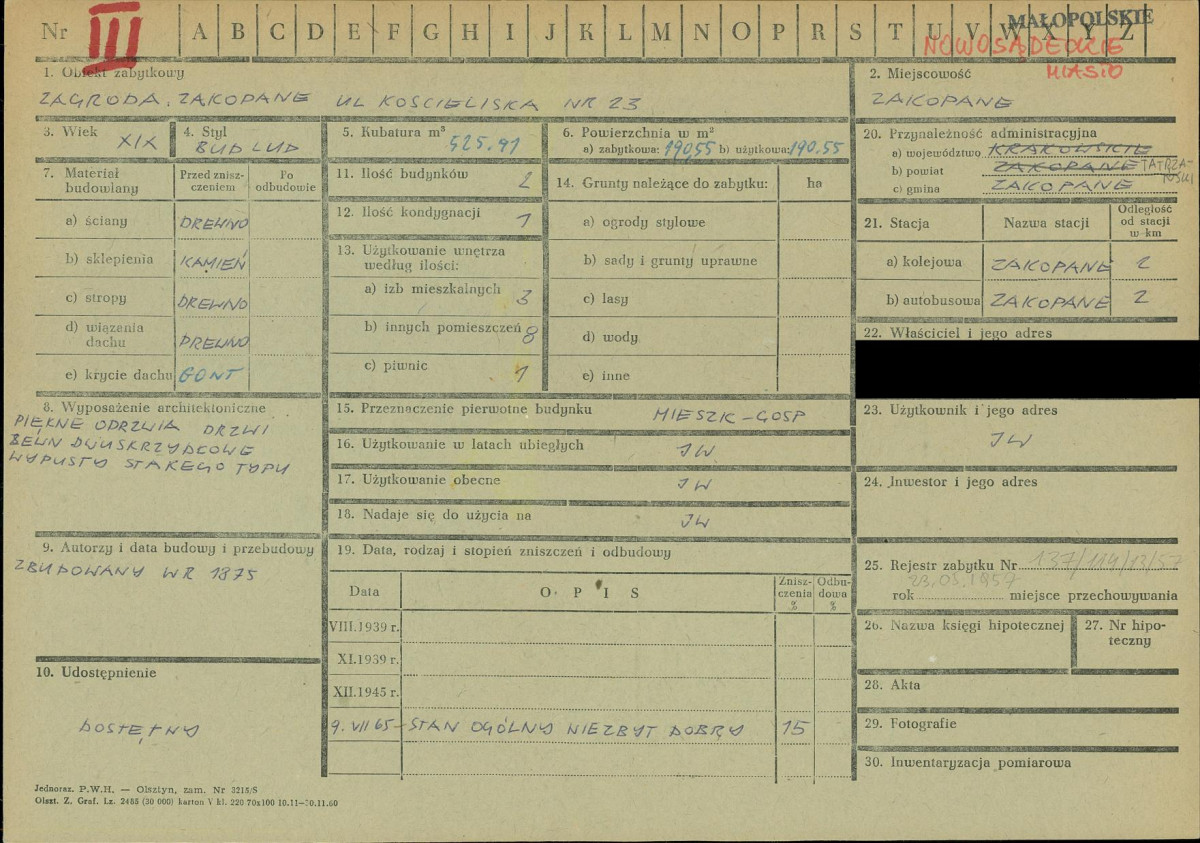 Nr III A B C D E F G H I J K L M N O P R S T U V W X Y Z
MAŁOPOLSKIE
NOWOSĄDECKIE
MIASTO
1. Obiekt zabytkowy
ZAGRODA, ZAKOPANE UL KOŚCIELISKA NR 23
2. Miejscowość
ZAKOPANE
3. Wiek XIX
4. Styl
BUD LUD
5. Kubatura m³
525.91
6. Powierzchnia w m²
a) zabytkowa: 190,55 b) użytkowa: 190.55
20. Przynależność administracyjna
a) województwo KRAKOWSKIE
b) powiat ZAKOPANE TATRZAŃSKI
c) gmina ZAKOPANE
7. Materiał budowlany
Przed zniszczeniem
Po odbudowie
a) ściany DREWNO
b) sklepienia KAMIEŃ
c) stropy DREWNO
d) wiązenia dachu DREWNO
e) krycie dachu GONT
11. Ilość budynków 2
12. Ilość kondygnacji 1
13. Użytkowanie wnętrza
według ilości:
a) izb mieszkalnych 3
b) innych pomieszczeń 8
c) piwnic 1
14. Grunty należące do zabytku: ha
a) ogrody stylowe
b) sady i grunty uprawne
c) lasy
d) wody
e) inne
21. Stacja Nazwa stacji Odległość od stacji w km
a) kolejowa ZAKOPANE 2
b) autobusowa ZAKOPANE 2
22. Właściciel i jego adres
8. Wyposażenie architektoniczne
PIĘKNE ODRZWIA DRZWI
DWUSKRZYDŁOWE
WYPUSTY STAREGO TYPU
15. Przeznaczenie pierwotne budynku MIESZK-GOSP
16. Użytkowanie w latach ubiegłych JW
17. Użytkowanie obecne JW
18. Nadaje się do użycia na JW
23. Użytkownik i jego adres
JW
24. Inwestor i jego adres
9. Autorzy i data budowy i przebudowy
ZBUDOWANY W R 1875
19. Data, rodzaj i stopień zniszczeń i odbudowy
Data OPIS Zniszczenia % Odbudowa %
VIII.1939 r.
XI.1939 r.
XII.1945 r.
9. VII 65 - STAN OGÓLNY NIEZBYT DOBRY 15
25. Rejestr zabytku Nr
rok 23.03.1957 miejsce przechowywania
26. Nazwa księgi hipotecznej
27. Nr hipoteczny
10. Udostępnienie
DOSTĘTNY
28. Akta
29. Fotografie
30. Inwentaryzacja pomiarowa
Jednoraz. P.W.H. — Olsztyn, zam. Nr 3215/S
Olszt. Z. Graf. Lz. 2455 (30 000) karton V kl. 220 70x100